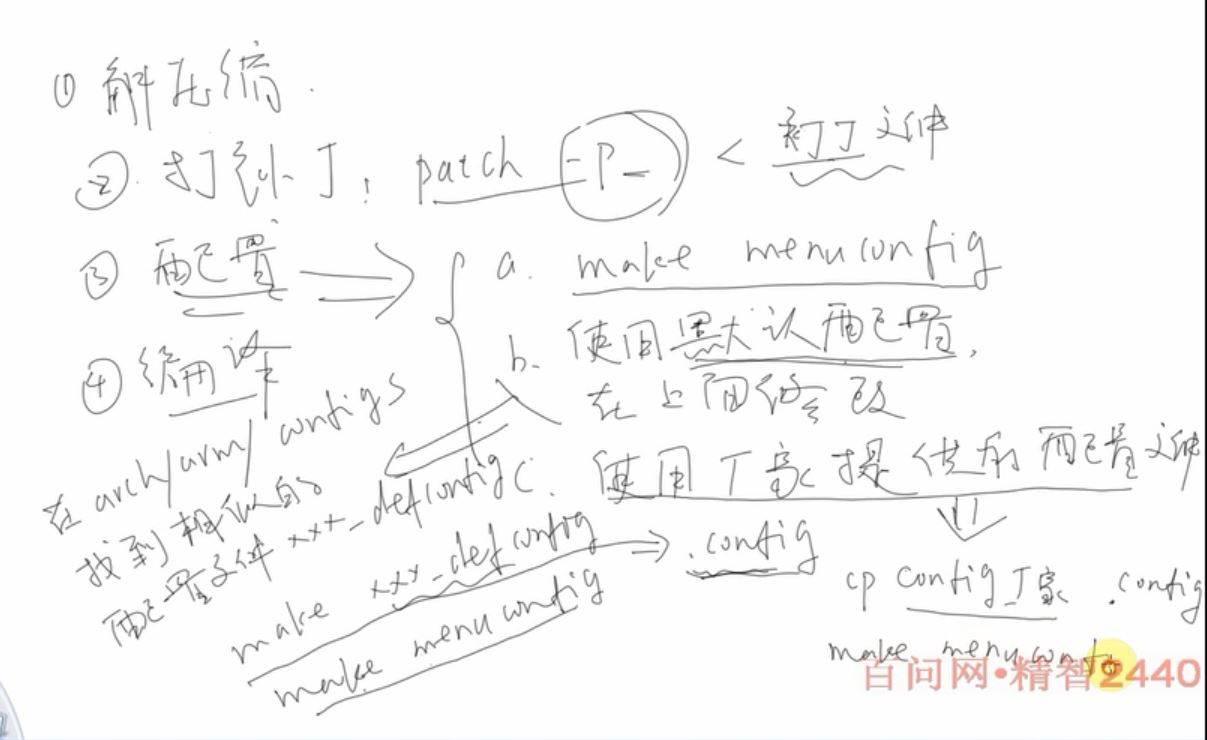 ① 解压缩.
② 打补丁: patch -P_ < 补丁文件
③ 配置 ⇒
a. make menuconfig
b. 使用默认配置,
在上面修改
④ 编译
c. 使用厂家提供的配置文件
在 arch/arm/configs
找到相似的
配置文件 xxx_defconfig
make xxx_defconfig ⇒ .config
make menuconfig
cp config_厂家 .config
make menuconfi
百问网•精智2440